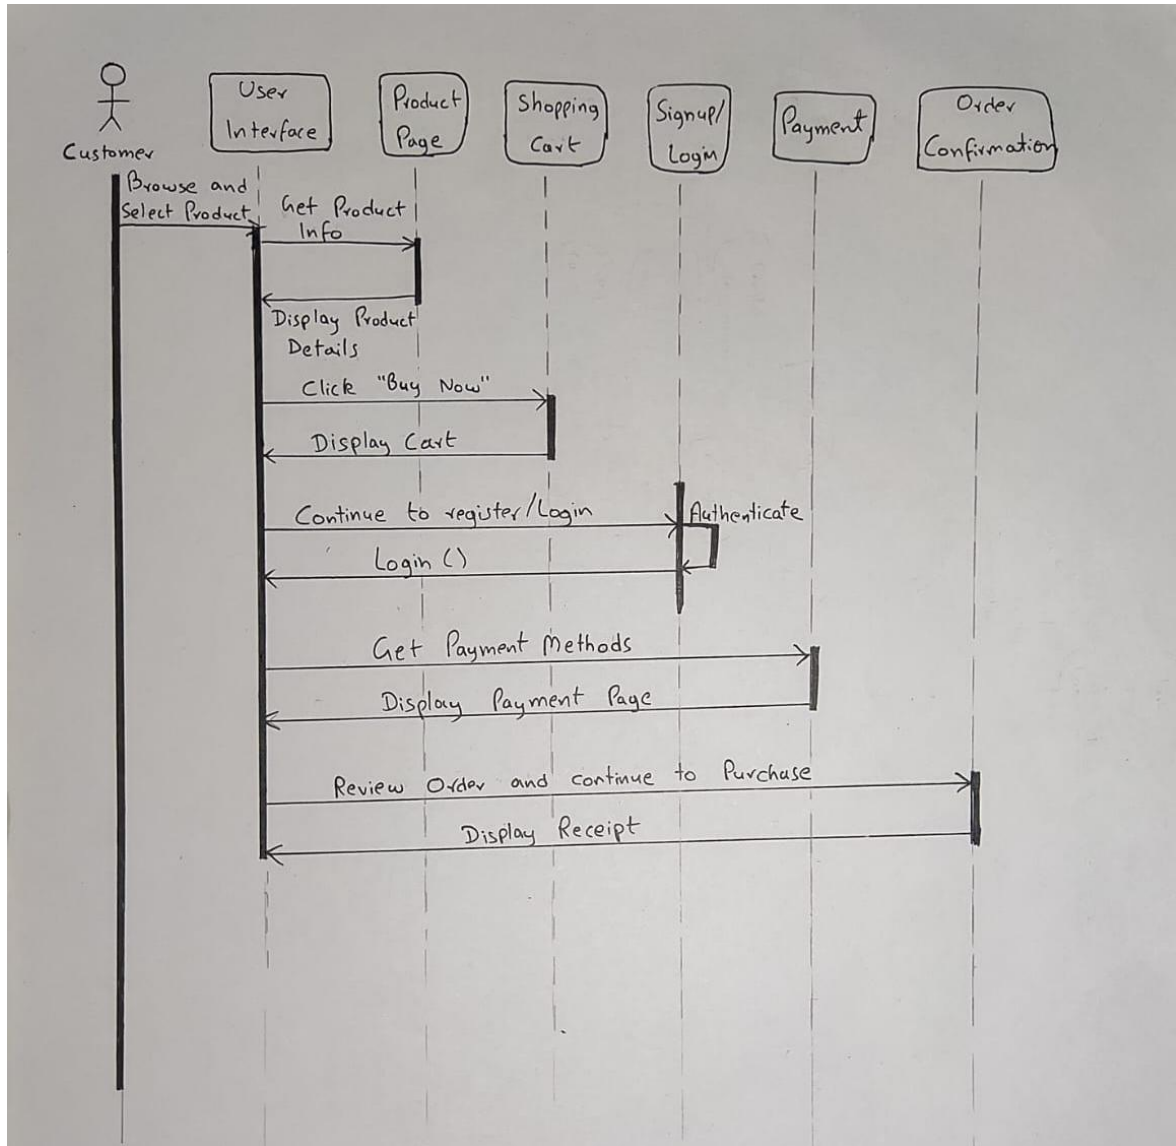 Customer
User
Interface
Product
Page
Shopping
Cart
Signup/
Login
Payment
Order
Confirmation
Browse and
Select Product
Get Product
Info
Display Product
Details
Click "Buy Now"
Display Cart
Continue to register/Login
Authenticate
Login ()
Get Payment Methods
Display Payment Page
Review Order and continue to Purchase
Display Receipt